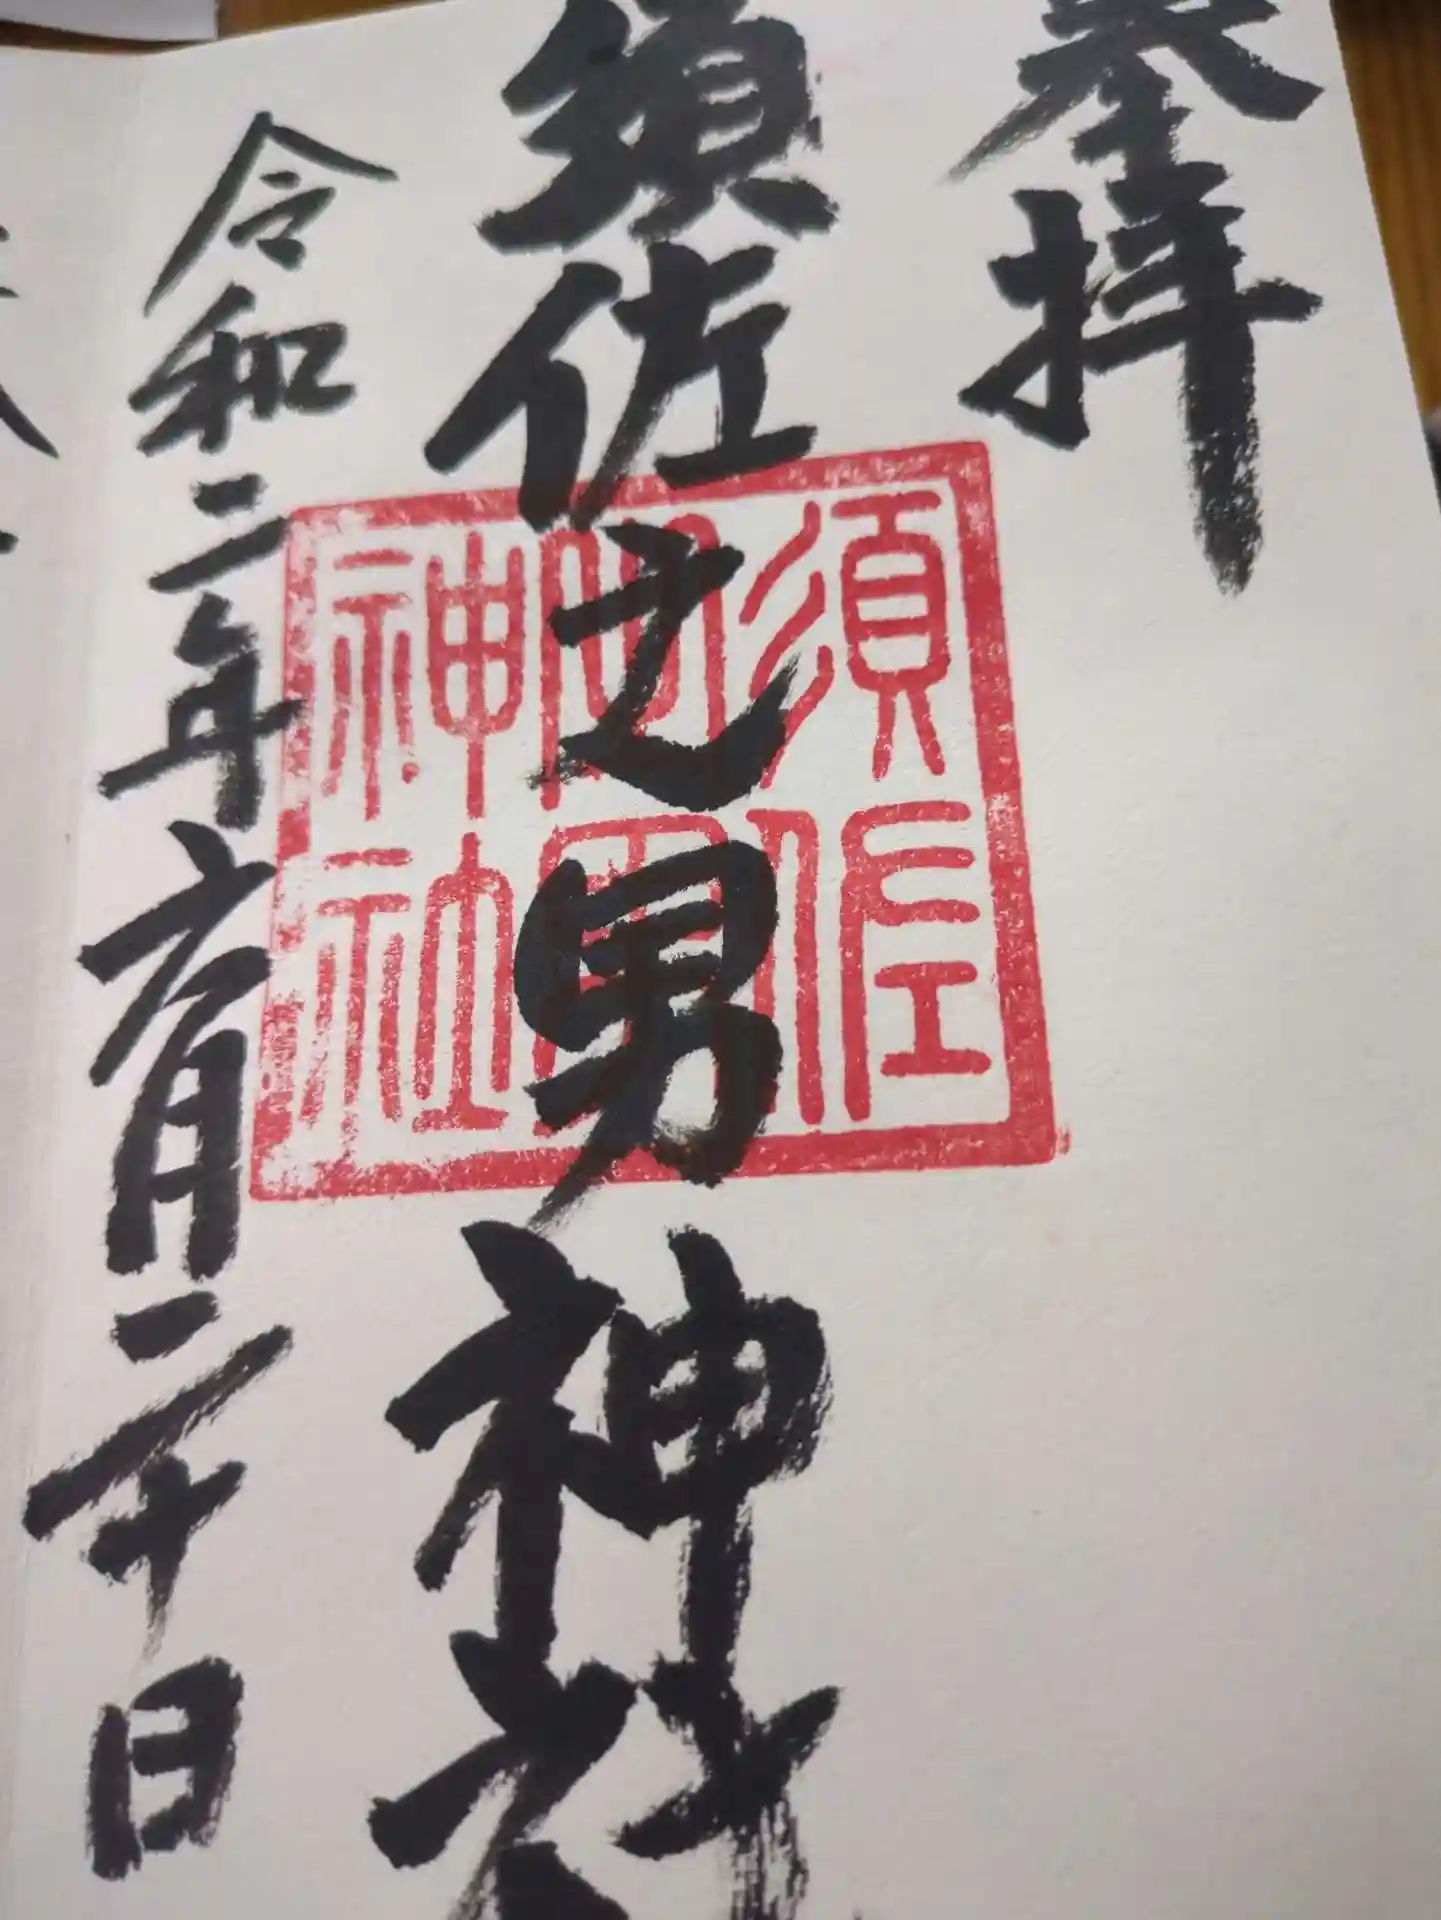 奉拝
須佐之男神社
須佐
之男
神社
令和二年六月二十日